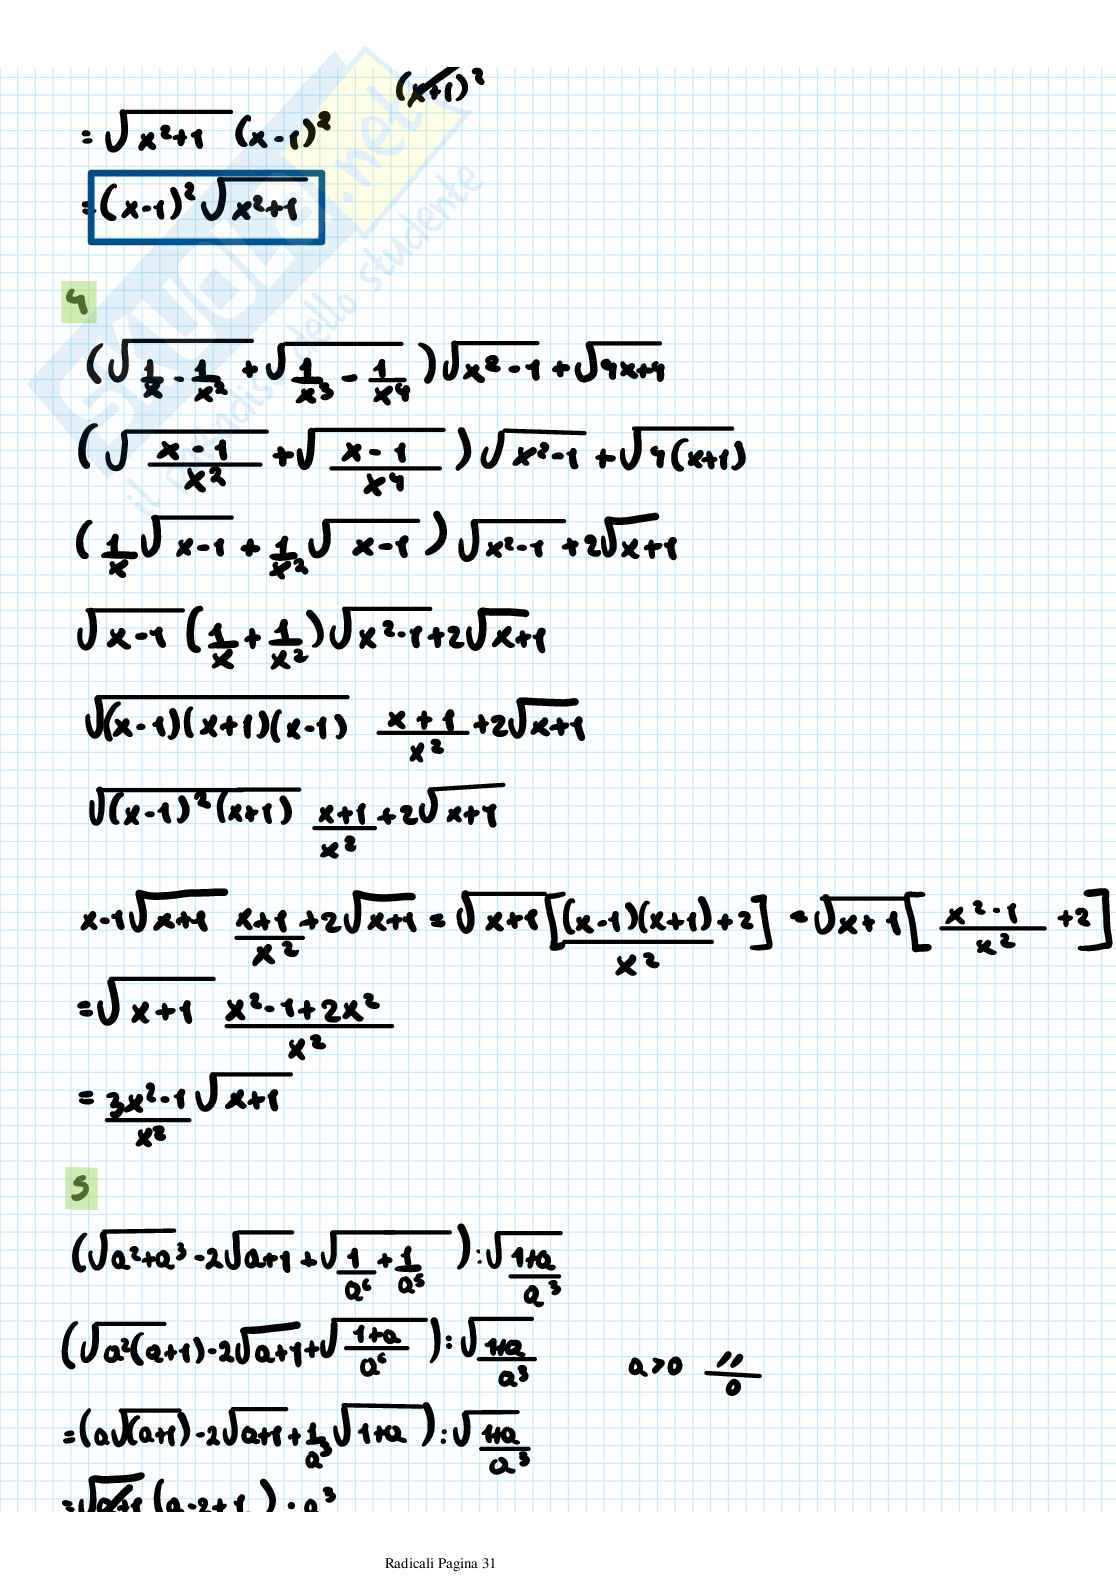 (x+1)²
= √(x²+1) (x-1)²
= (x-1)² √(x²+1)
SKUOLA.net
il paradiso dello studente
4
(√(1/x - 1/x²) + √(1/x³ - 1/x⁴)) √(x²-1) + √(4x+4)
(√((x-1)/x²) + √((x-1)/x⁴)) √(x²-1) + √(4(x+1))
(1/x √(x-1) + 1/x² √(x-1)) √(x²-1) + 2√(x+1)
√(x-1) (1/x + 1/x²) √(x²-1) + 2√(x+1)
√((x-1)(x+1)(x-1)) (x+1)/x² + 2√(x+1)
√((x-1)²(x+1)) (x+1)/x² + 2√(x+1)
x-1√(x+1) (x+1)/x² + 2√(x+1) = √(x+1) [((x-1)(x+1)+2)/x²] = √(x+1) [(x²-1)/x² + 2]
= √(x+1) (x²-1+2x²)/x²
= (3x²-1)/x² √(x+1)
5
(√(a²+a³) - 2√(a+1) + √(1/a⁶ + 1/a⁵)) : √((1+a)/a³)
(√(a²(a+1)) - 2√(a+1) + √((1+a)/a⁶)) : √((1+a)/a³) a>0 "/0
= (a√((a+1)) - 2√(a+1) + 1/a³ √(1+a)) : √((1+a)/a³)
= √(a+1) (a-2+1 ) · a³
Radicali Pagina 31